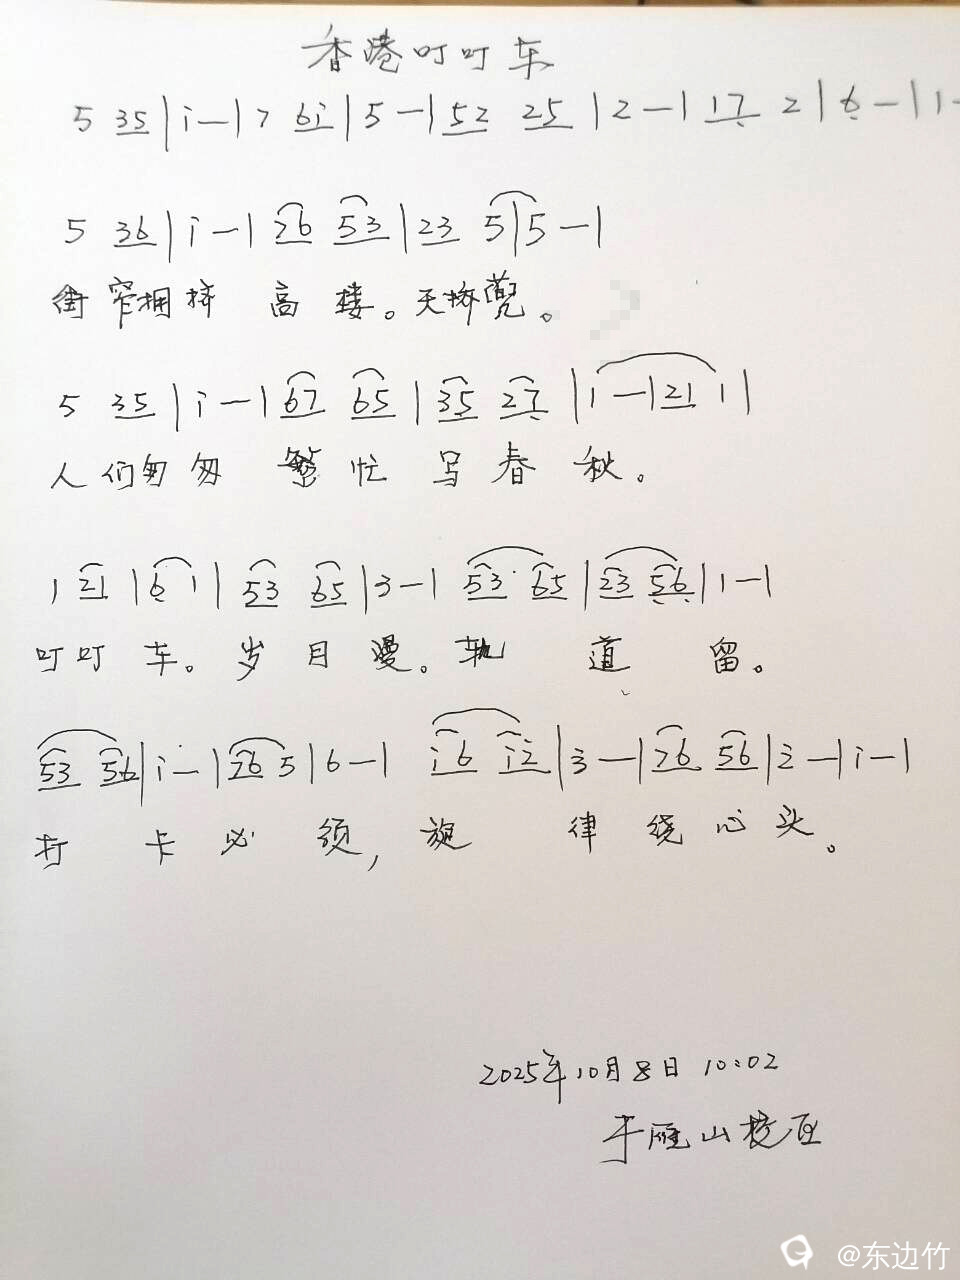 香港叮叮车
5 35 | i — | 7 6i | 5 — | 52 25 | 2 — | 17 2 | 6 — | 1 -
5 36 | i — | 76 53 | 23 5 | 5 — |
街窄拥挤 高楼。天桥兜。
5 35 | i — | 67 65 | 35 27 | 1 — | 21 1 |
人们匆匆 繁忙写春秋。
1 21 | 6 1 | 53 65 | 3 — | 53 65 | 23 56 | 1 — |
叮叮车。岁月漫。轨道留。
53 56 | i — | 76 5 | 6 — | i6 i2 | 3 — | 76 56 | 2 — | i — |
打卡必须,旋律绕心头。
2025年10月8日 10:02
于雁山校区
@东边竹